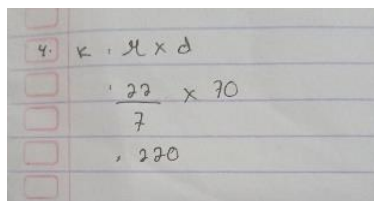 4. K : π x d
: 22/7 x 70
: 220